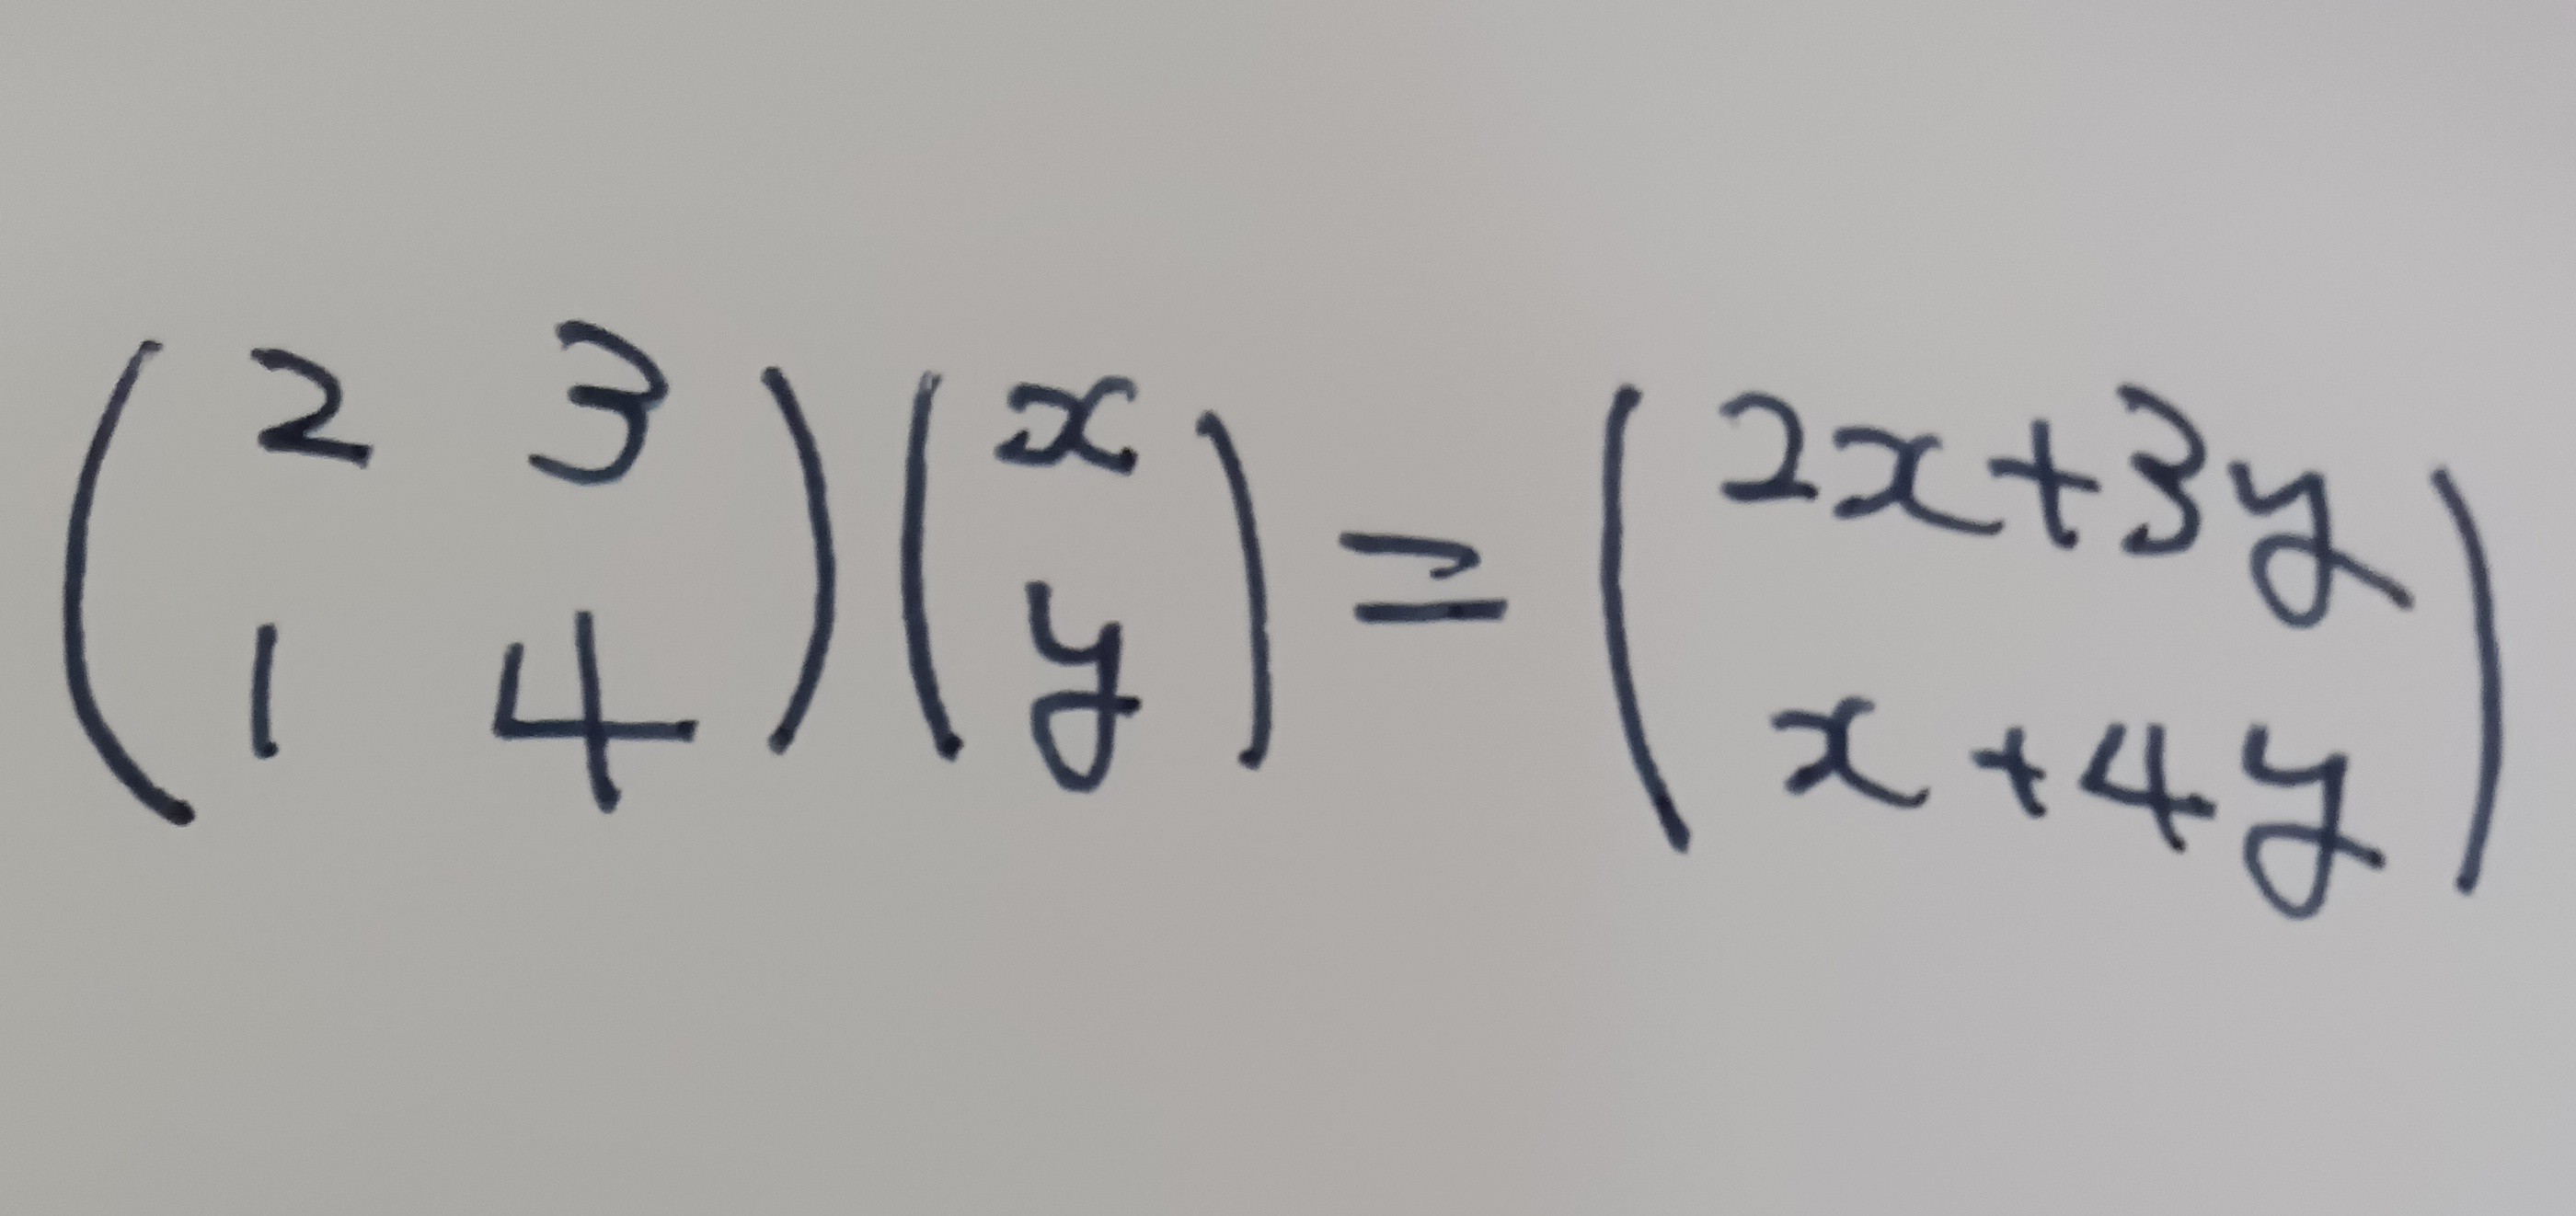 $$\begin{pmatrix} 2 & 3 \\ 1 & 4 \end{pmatrix} \begin{pmatrix} x \\ y \end{pmatrix} = \begin{pmatrix} 2x+3y \\ x+4y \end{pmatrix}$$